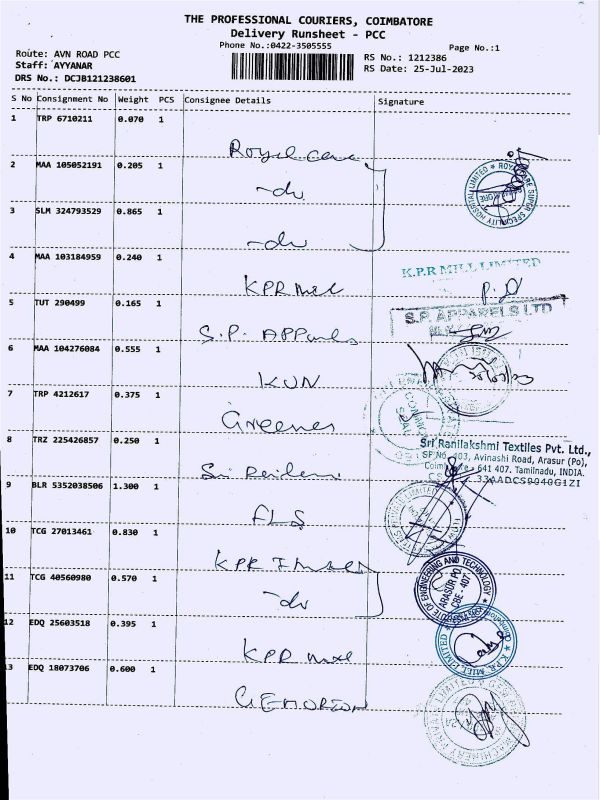 THE PROFESSIONAL COURIERS, COIMBATORE
Delivery Runsheet - PCC
Phone No.:0422-3505555
Page No.:1
Route: AVN ROAD PCC
RS No.: 1212386
Staff: AYYANAR
RS Date: 25-Jul-2023
DRS No.: DCJB121238601
S No Consignment No Weight PCS Consignee Details Signature
1 TRP 6710211 0.070 1
Royal care
2 MAA 105052191 0.205 1
-do
3 SLM 324793529 0.865 1
-do
ROYAL CARE SUPER SPECIALITY HOSPITAL LIMITED
4 MAA 103184959 0.240 1
KPR Mill
K.P.R MILL LIMITED
5 TUT 290499 0.165 1
S.P. Apparels
S.P. APPARELS LTD
6 MAA 104276084 0.555 1
KUN
7 TRP 4212617 0.375 1
Greenes
COMMON SEAL
8 TRZ 225426857 0.250 1
Sri
Sri Ranilakshmi Textiles Pvt. Ltd.,
SF No. 403, Avinashi Road, Arasur (Po),
- 641 407. Tamilnadu, INDIA.
33AADCS9040G1ZI
9 BLR 5352038506 1.300 1
FLS
10 TCG 27013461 0.830 1
KPR
11 TCG 40560980 0.570 1
-do
INSTITUTE OF ENGINEERING AND TECHNOLOGY
ARASUR PO
CBE - 407
12 EDQ 25603518 0.395 1
KPR Mill
K.P.R. MILL LIMITED
13 EDQ 18073706 0.600 1